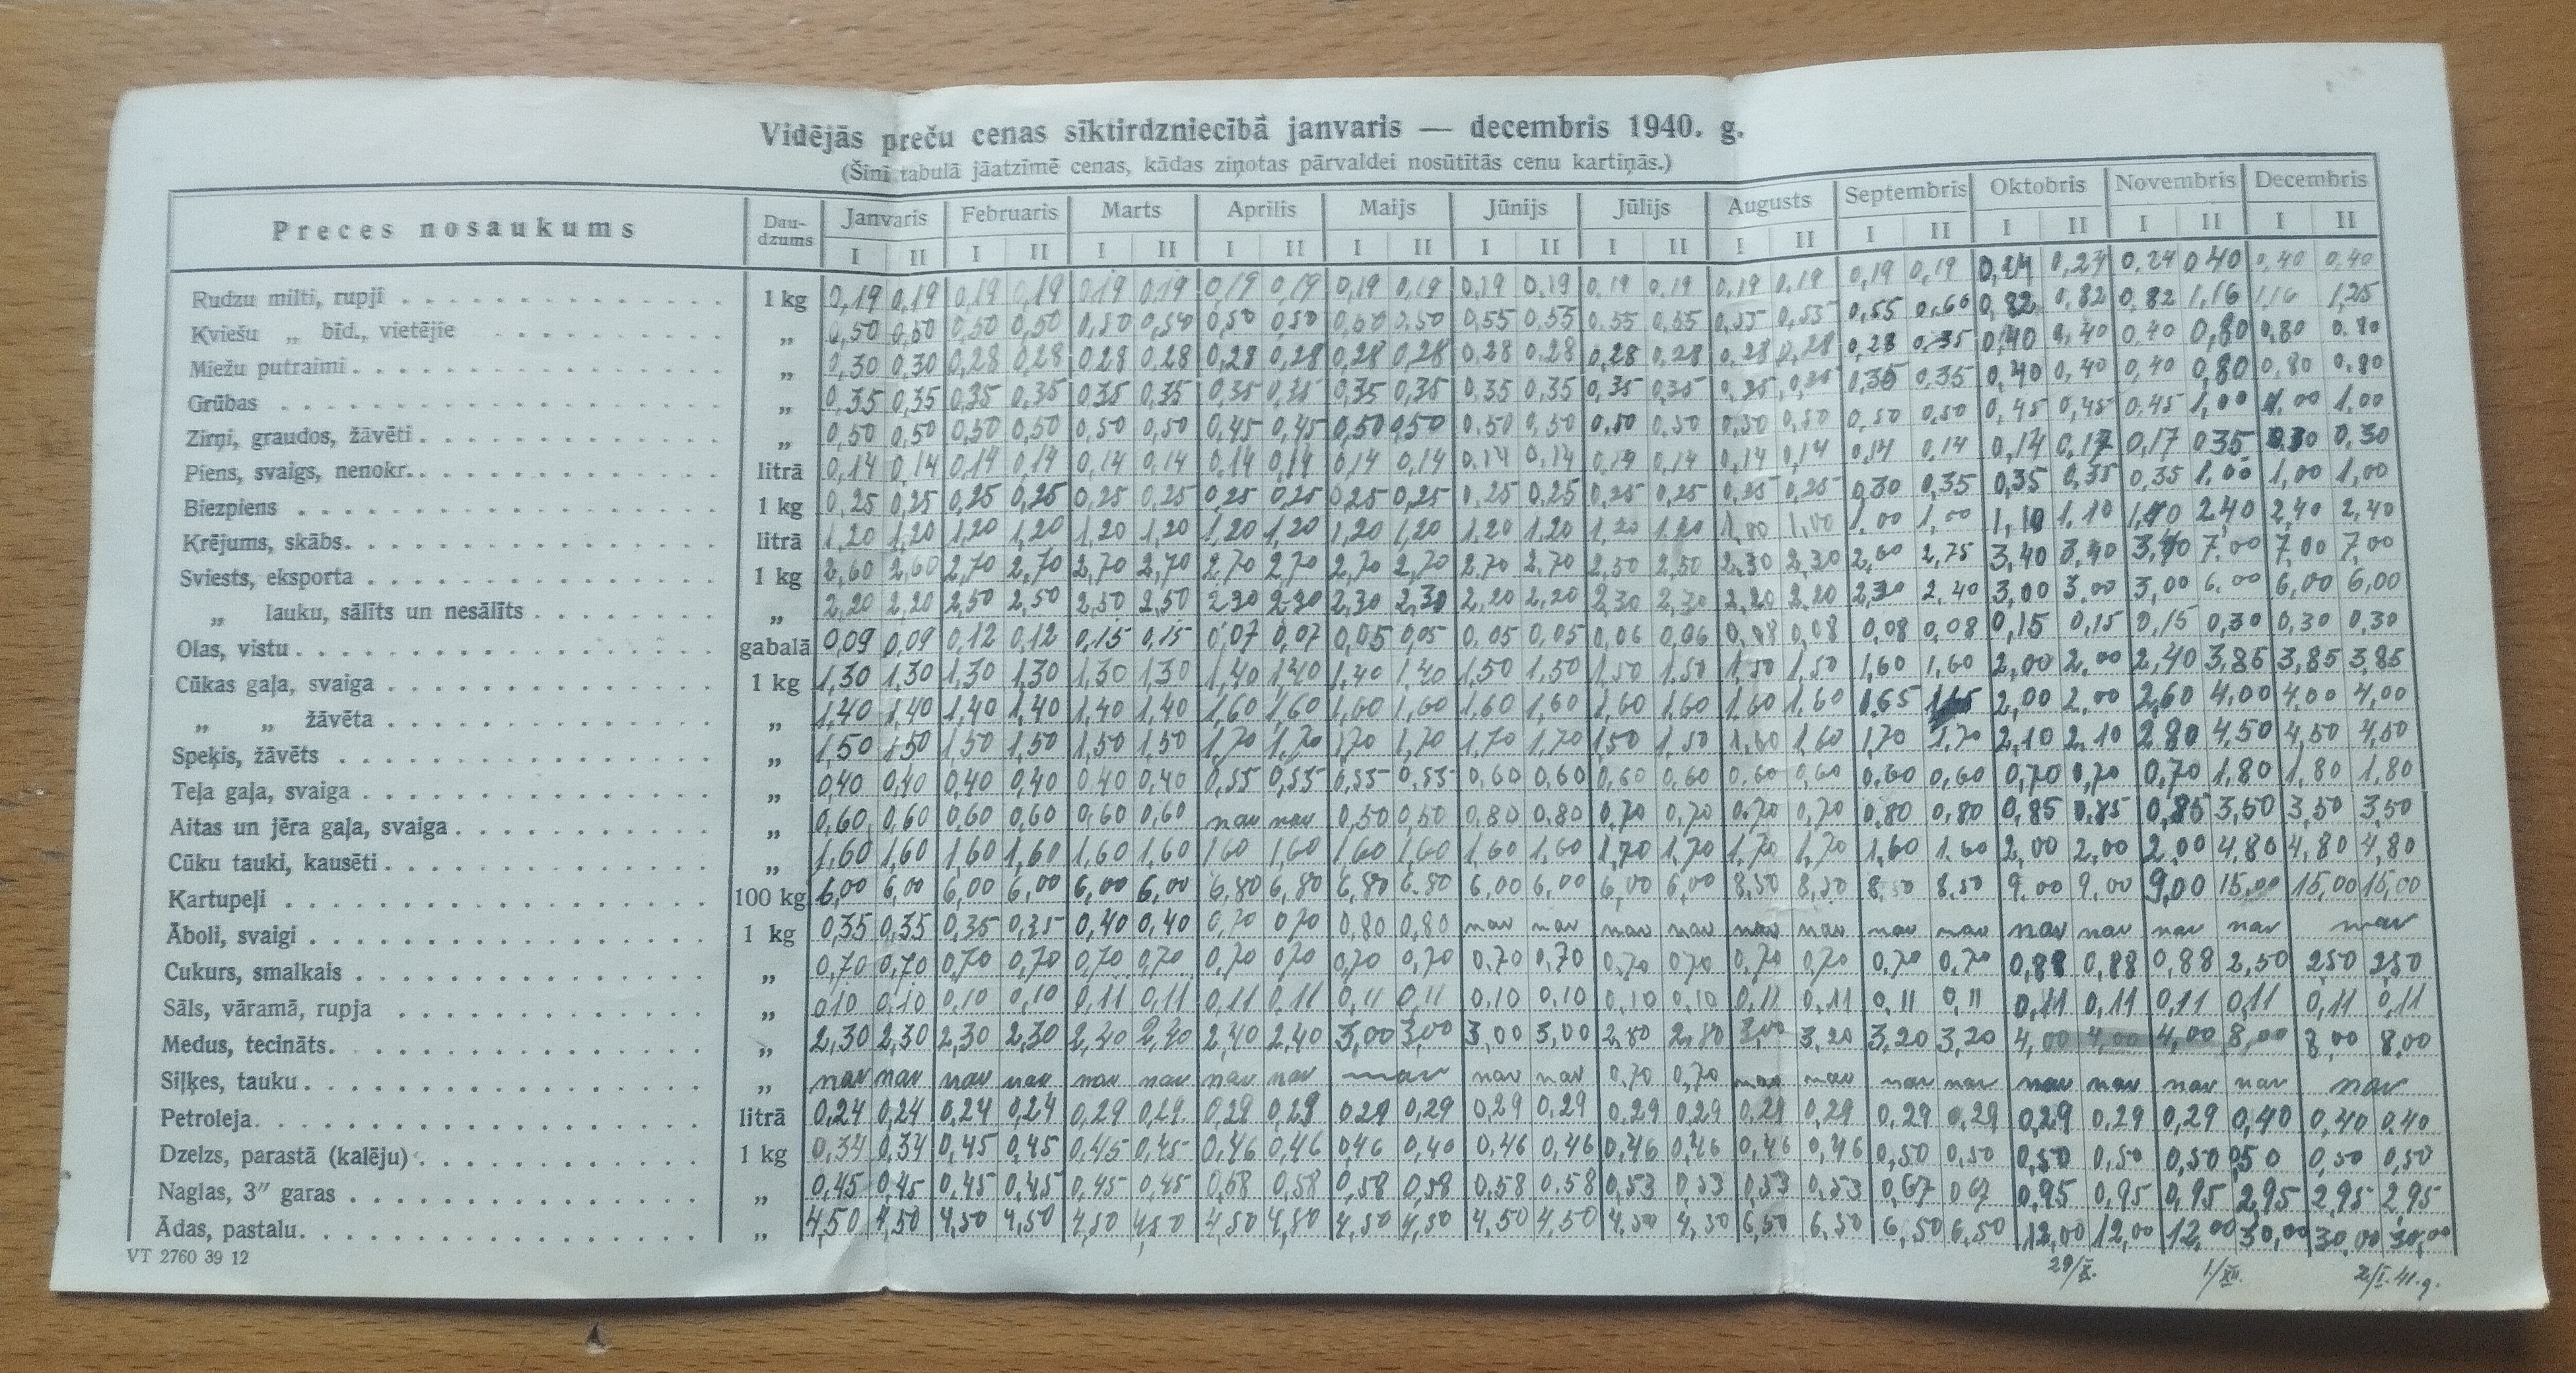 Vidējās preču cenas sīktirdzniecībā janvaris — decembris 1940. g.
(Šinī tabulā jāatzīmē cenas, kādas ziņotas pārvaldei nosūtītās cenu kartiņās.)
Preces nosaukums Daudzums Janvaris Februaris Marts Aprilis Maijs Jūnijs Jūlijs Augusts Septembris Oktobris Novembris Decembris
I II I II I II I II I II I II I II I II I II I II I II I II
Rudzu milti, rupji 1 kg 0,19 0,19 0,19 0,19 0,19 0,19 0,19 0,19 0,19 0,19 0,19 0,19 0,19 0,19 0,19 0,19 0,19 0,19 0,24 0,24 0,24 0,40 0,40 0,40
Kviešu „ bīd., vietējie „ 0,50 0,50 0,50 0,50 0,50 0,50 0,50 0,50 0,50 0,50 0,55 0,55 0,55 0,55 0,55 0,55 0,55 0,60 0,82 0,82 0,82 1,16 1,16 1,25
Miežu putraimi „ 0,30 0,30 0,28 0,28 0,28 0,28 0,28 0,28 0,28 0,28 0,28 0,28 0,28 0,28 0,28 0,28 0,28 0,35 0,40 0,40 0,40 0,80 0,80 0.80
Grūbas „ 0,35 0,35 0,35 0,35 0,35 0,35 0,35 0,35 0,35 0,35 0,35 0,35 0,35 0,35 0,35 0,35 0,35 0,35 0,40 0,40 0,40 0,80 0,80 0.80
Zirņi, graudos, žāvēti „ 0,50 0,50 0,50 0,50 0,50 0,50 0,45 0,45 0,50 0,50 0,50 0,50 0,50 0,50 0,50 0,50 0,50 0,50 0,45 0,45 0,45 1,00 1,00 1,00
Piens, svaigs, nenokr. litrā 0,14 0,14 0,14 0,14 0,14 0,14 0,14 0,14 0,14 0,14 0,14 0,14 0,14 0,14 0,14 0,14 0,14 0,14 0,14 0,17 0,17 0,35 0,30 0,30
Biezpiens 1 kg 0,25 0,25 0,25 0,25 0,25 0,25 0,25 0,25 0,25 0,25 0,25 0,25 0,25 0,25 0,25 0,25 0,30 0,35 0,35 0,35 0,35 1,00 1,00 1,00
Krējums, skābs litrā 1,20 1,20 1,20 1,20 1,20 1,20 1,20 1,20 1,20 1,20 1,20 1,20 1,20 1,20 1,00 1,00 1,00 1,00 1,10 1,10 2,40 2,40 2,40
Sviests, eksporta 1 kg 2,60 2,60 2,70 2,70 2,70 2,70 2,70 2,70 2,70 2,70 2,70 2,70 2,50 2,50 2,30 2,30 2,60 2,75 3,40 3,40 3,40 7,00 7,00 7,00
„ lauku, sālīts un nesālīts „ 2,20 2,20 2,50 2,50 2,50 2,50 2,30 2,30 2,30 2,30 2,20 2,20 2,30 2,30 2,20 2,20 2,30 2,40 3,00 3,00 3,00 6,00 6,00 6,00
Olas, vistu gabalā 0,09 0,09 0,12 0,12 0,15 0,15 0,07 0,07 0,05 0,05 0,05 0,05 0,06 0,06 0,08 0,08 0,08 0,08 0,15 0,15 0,15 0,30 0,30 0,30
Cūkas gaļa, svaiga 1 kg 1,30 1,30 1,30 1,30 1,30 1,30 1,40 1,40 1,40 1,40 1,50 1,50 1,50 1,50 1,50 1,50 1,60 1,60 2,00 2,00 2,40 3,85 3,85 3,85
„ „ žāvēta „ 1,40 1,40 1,40 1,40 1,40 1,40 1,60 1,60 1,60 1,60 1,60 1,60 1,60 1,60 1,60 1,60 1,65 1,65 2,00 2,00 2,60 4,00 4,00 4,00
Speķis, žāvēts „ 1,50 1,50 1,50 1,50 1,50 1,50 1,70 1,70 1,70 1,70 1,70 1,70 1,50 1,50 1,60 1,60 1,70 1,70 2,10 2,10 2,80 4,50 4,50 4,50
Teļa gaļa, svaiga „ 0,40 0,40 0,40 0,40 0,40 0,40 0,55 0,55 0,55 0,55 0,60 0,60 0,60 0,60 0,60 0,60 0,60 0,60 0,70 0,70 0,70 1,80 1,80 1,80
Aitas un jēra gaļa, svaiga „ 0,60 0,60 0,60 0,60 0,60 0,60 nav nav 0,50 0,50 0,80 0,80 0,70 0,70 0,70 0,70 0,80 0,80 0,85 0,85 0,85 3,50 3,50 3,50
Cūku tauki, kausēti „ 1,60 1,60 1,60 1,60 1,60 1,60 1,60 1,60 1,60 1,60 1,60 1,60 1,70 1,70 1,70 1,70 1,60 1,60 2,00 2,00 2,00 4,80 4,80 4,80
Kartupeļi 100 kg 6,00 6,00 6,00 6,00 6,00 6,00 6,80 6,80 6,80 6,80 6,00 6,00 6,00 6,00 8,50 8,50 8,50 8,50 9,00 9,00 9,00 15,00 15,00 15,00
Āboli, svaigi 1 kg 0,35 0,35 0,35 0,35 0,40 0,40 0,70 0,70 0,80 0,80 nav nav nav nav nav nav nav nav nav nav nav nav nav
Cukurs, smalkais „ 0,70 0,70 0,70 0,70 0,70 0,70 0,70 0,70 0,70 0,70 0,70 0,70 0,70 0,70 0,70 0,70 0,70 0,70 0,88 0,88 0,88 2,50 2,50 2,50
Sāls, vāramā, rupja „ 0,10 0,10 0,10 0,10 0,11 0,11 0,11 0,11 0,11 0,11 0,10 0,10 0,10 0,10 0,11 0,11 0,11 0,11 0,11 0,11 0,11 0,11 0,11 0,11
Medus, tecināts „ 2,30 2,30 2,30 2,30 2,40 2,40 2,40 2,40 3,00 3,00 3,00 3,00 2,80 2,80 3,00 3,20 3,20 3,20 4,00 4,00 4,00 8,00 8,00 8,00
Siļķes, tauku „ nav nav nav nav nav nav nav nav nav nav nav 0,70 0,70 nav nav nav nav nav nav nav nav nav
Petroleja litrā 0,24 0,24 0,24 0,24 0,29 0,29 0,29 0,29 0,29 0,29 0,29 0,29 0,29 0,29 0,29 0,29 0,29 0,29 0,29 0,29 0,29 0,40 0,40 0,40
Dzelzs, parastā (kalēju) 1 kg 0,34 0,34 0,45 0,45 0,45 0,45 0,46 0,46 0,46 0,40 0,46 0,46 0,46 0,46 0,46 0,46 0,50 0,50 0,50 0,50 0,50 0,50 0,50 0,50
Naglas, 3″ garas „ 0,45 0,45 0,45 0,45 0,45 0,45 0,58 0,58 0,58 0,58 0,58 0,58 0,53 0,53 0,53 0,53 0,67 0,67 0,95 0,95 0,95 2,95 2,95 2,95
Ādas, pastalu „ 4,50 4,50 4,50 4,50 4,50 4,50 4,50 4,50 4,50 4,50 4,50 4,50 4,50 4,50 6,50 6,50 6,50 6,50 12,00 12,00 12,00 30,00 30,00 30,00
VT 2760 39 12 29/X. 1./XII. 2/I. 41. g.